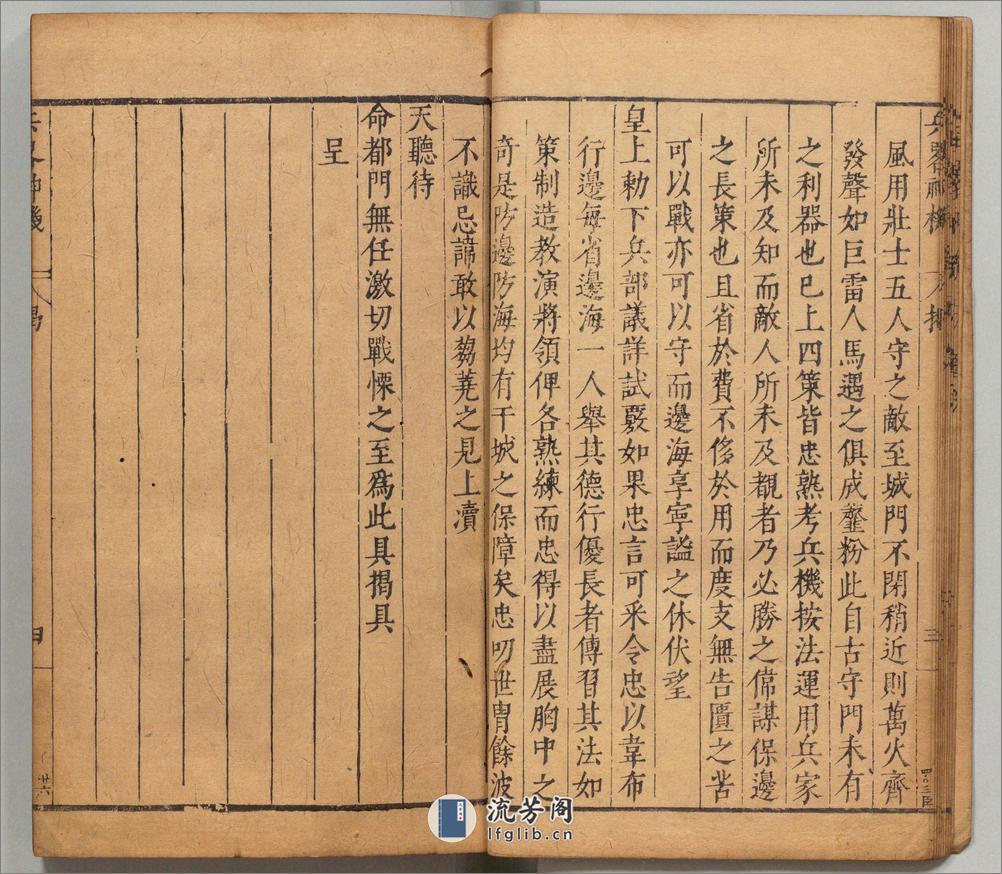 兵畧神機
三
風用壯士五人守之敵至城門不閉稍近則萬火齊
發聲如巨雷人馬遇之俱成虀粉此自古守門未有
之利器也已上四策皆忠熟考兵機按法運用兵家
所未及知而敵人所未及覩者乃必勝之偹謀保邊
之長策也且省於費不侈於用而度支無告匱之苦
可以戰亦可以守而邊海享寧謐之休伏望
皇上勅下兵部議詳試覈如果忠言可采令忠以韋布
行邊每省邊海一人舉其德行優長者傳習其法如
策制造教演將領俾各熟練而忠得以盡展胸中之
奇是防邊防海均有干城之保障矣忠叨世胄餘波
不識忌諱敢以芻蕘之見上瀆
天聽待
命都門無任激切戰慄之至爲此具揭具
呈
流芳阁
lfglib.cn